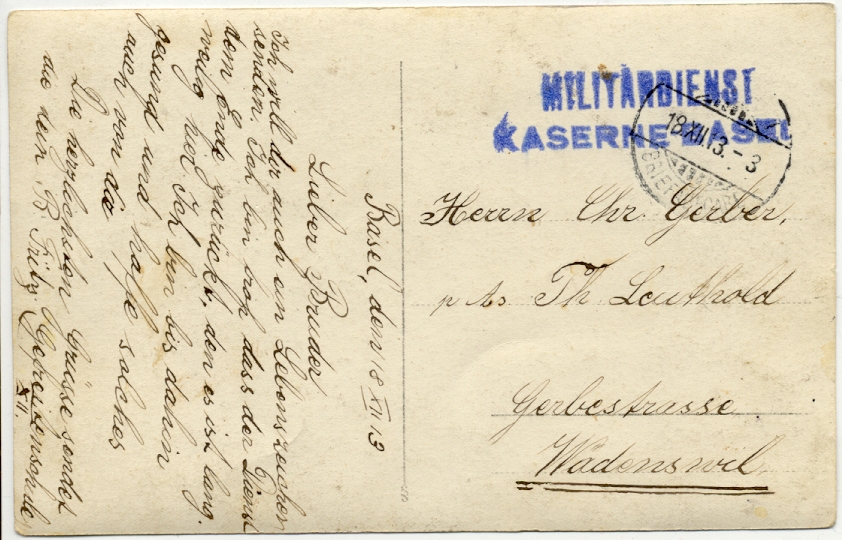 Basel, den 18 XII 13
Lieber Bruder
Ich will dir auch ein Lebenszeichen
senden. Ich bin froh dass der Dienst
dem Ende zurückt, den es ist lang-
weilig hier. Ich bin bis dahin
gesund und hoffe solches
auch von dir
Die herzlichsten Grüsse sendet
dir dein B. Fritz
XII.
MILITÄRDIENST
KASERNE BASEL
18.XII.13.-3
Herrn Chr Gerber,
p Ads Th Leuthold
Gerbestrasse
Wädenswil